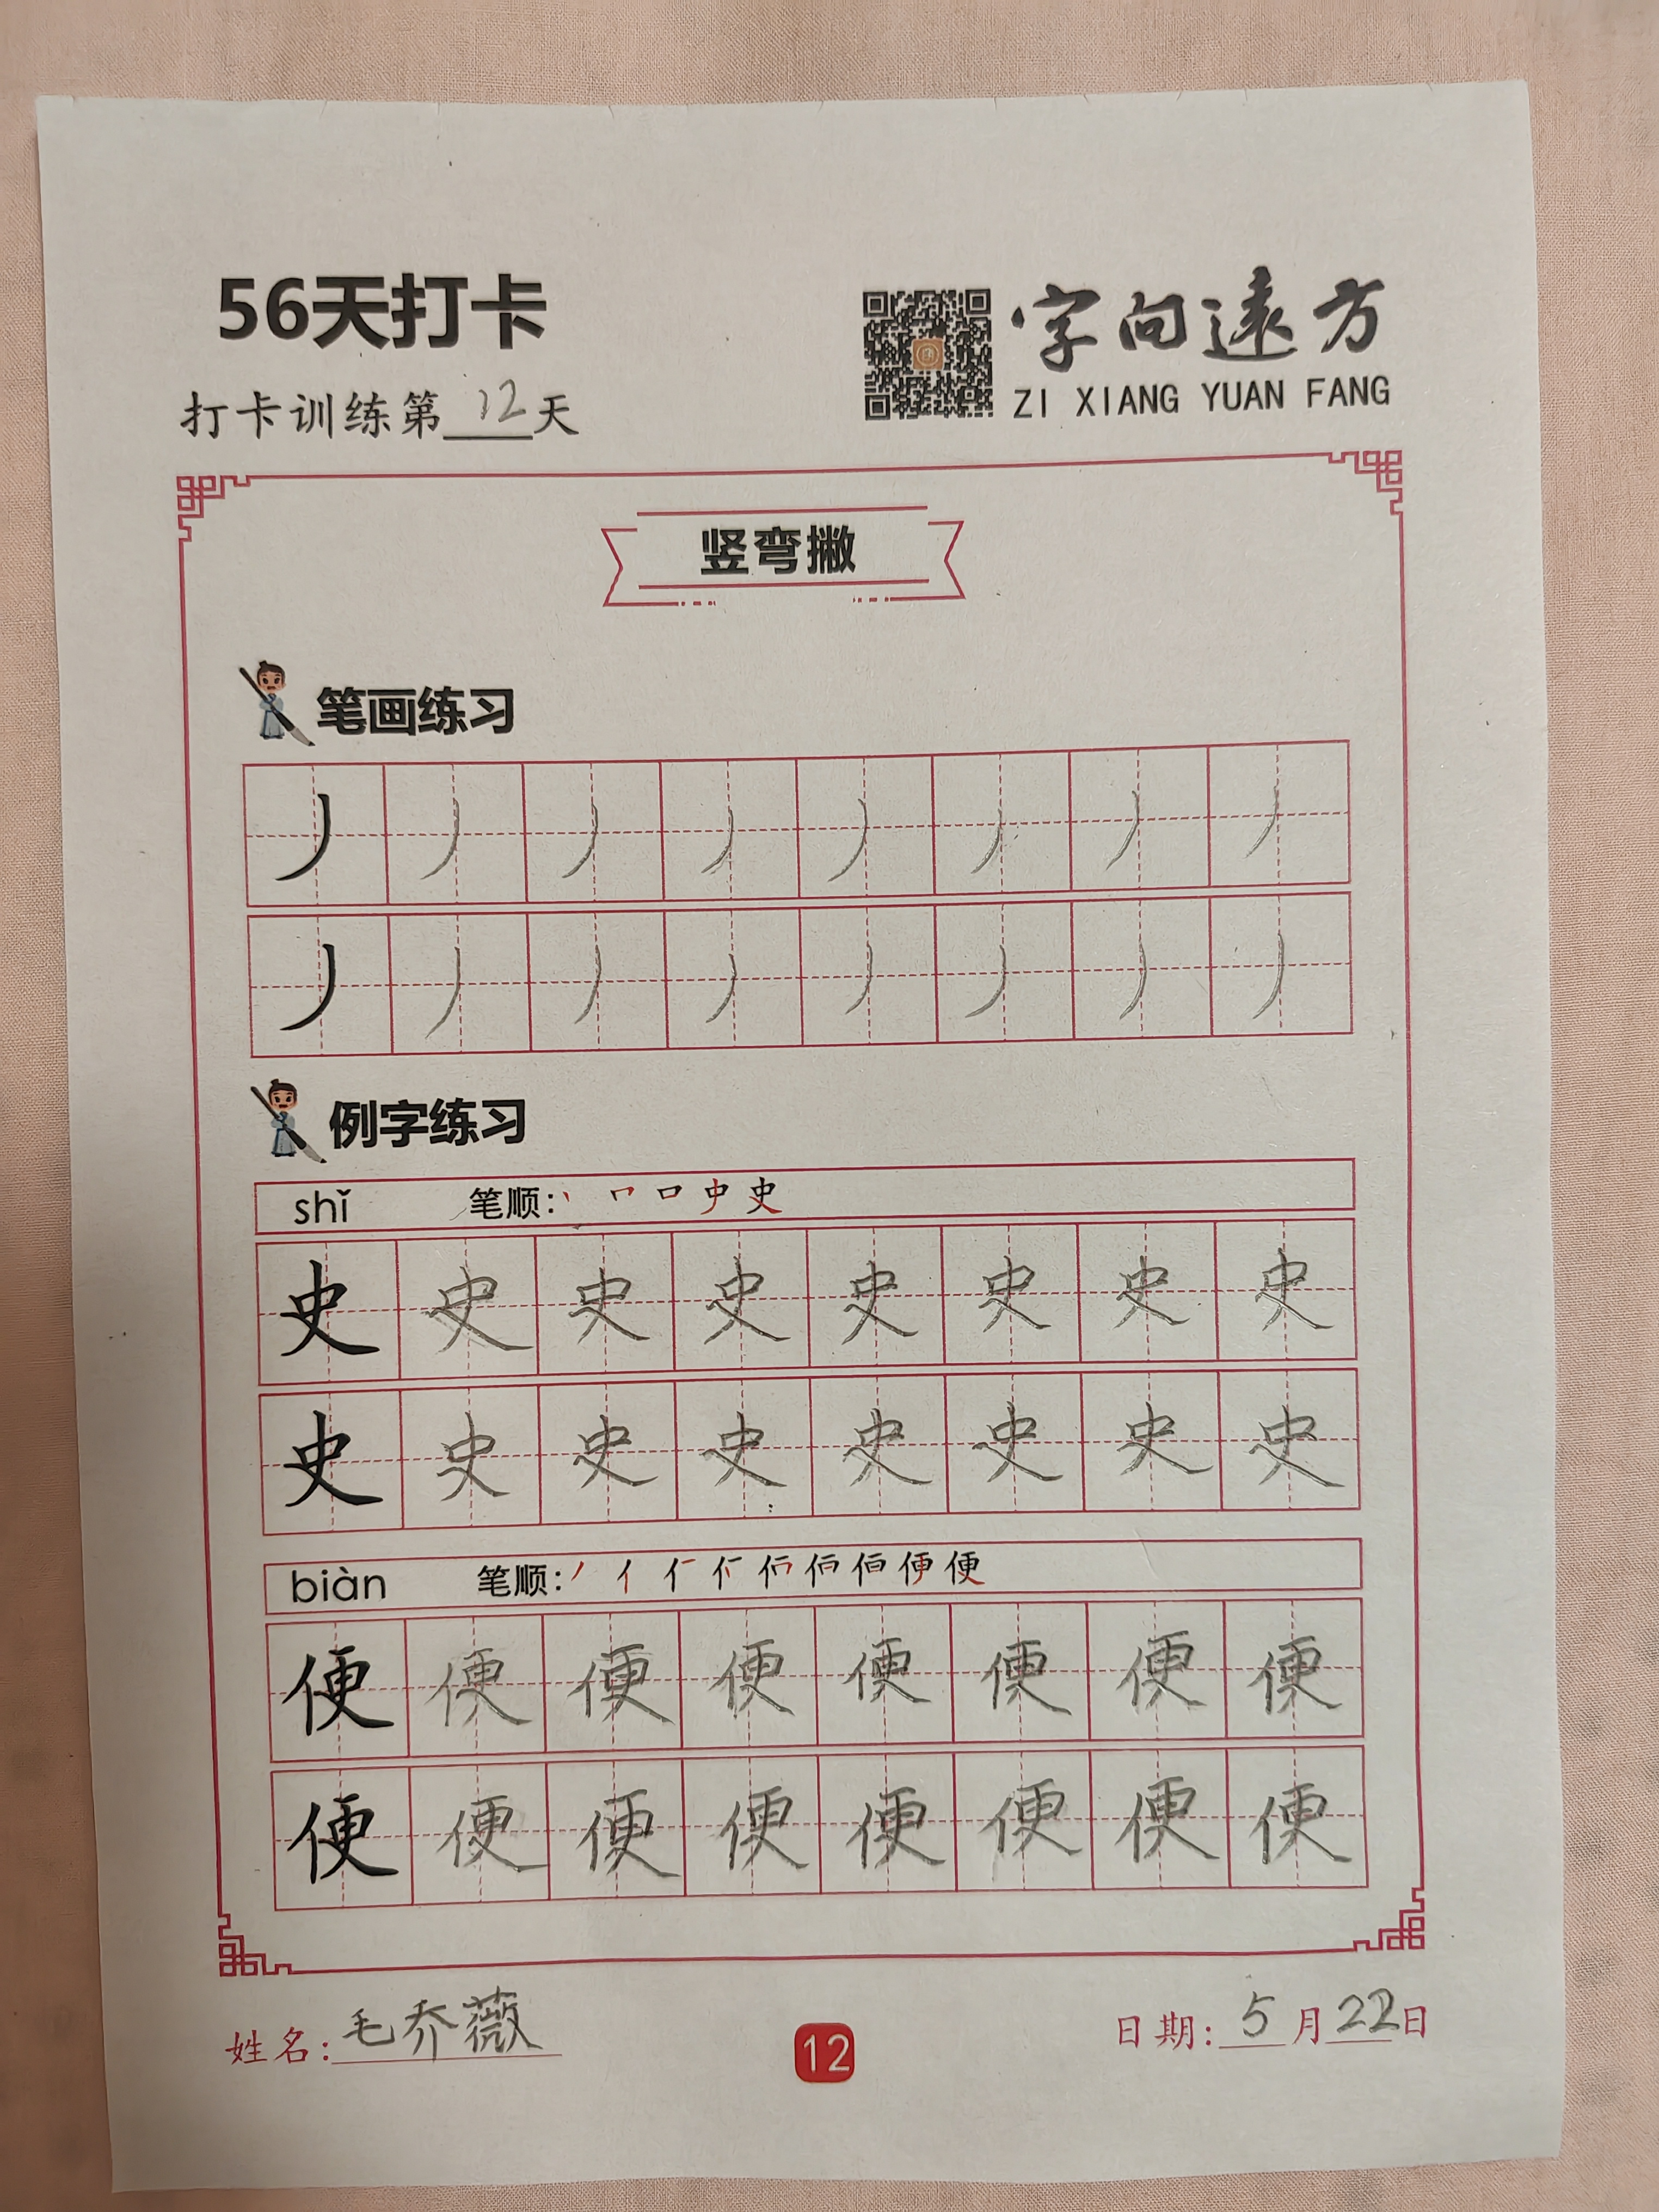 56天打卡
字向遠方
ZI XIANG YUAN FANG
打卡训练第12天
竖弯撇
笔画练习
丿 丿 丿 丿 丿 丿 丿 丿
丿 丿 丿 丿 丿 丿 丿 丿
例字练习
shǐ 笔顺: 史
史 史 史 史 史 史 史 史
史 史 史 史 史 史 史 史
biàn 笔顺: 便
便 便 便 便 便 便 便 便
便 便 便 便 便 便 便 便
姓名: 毛乔薇
12
日期: 5月22日